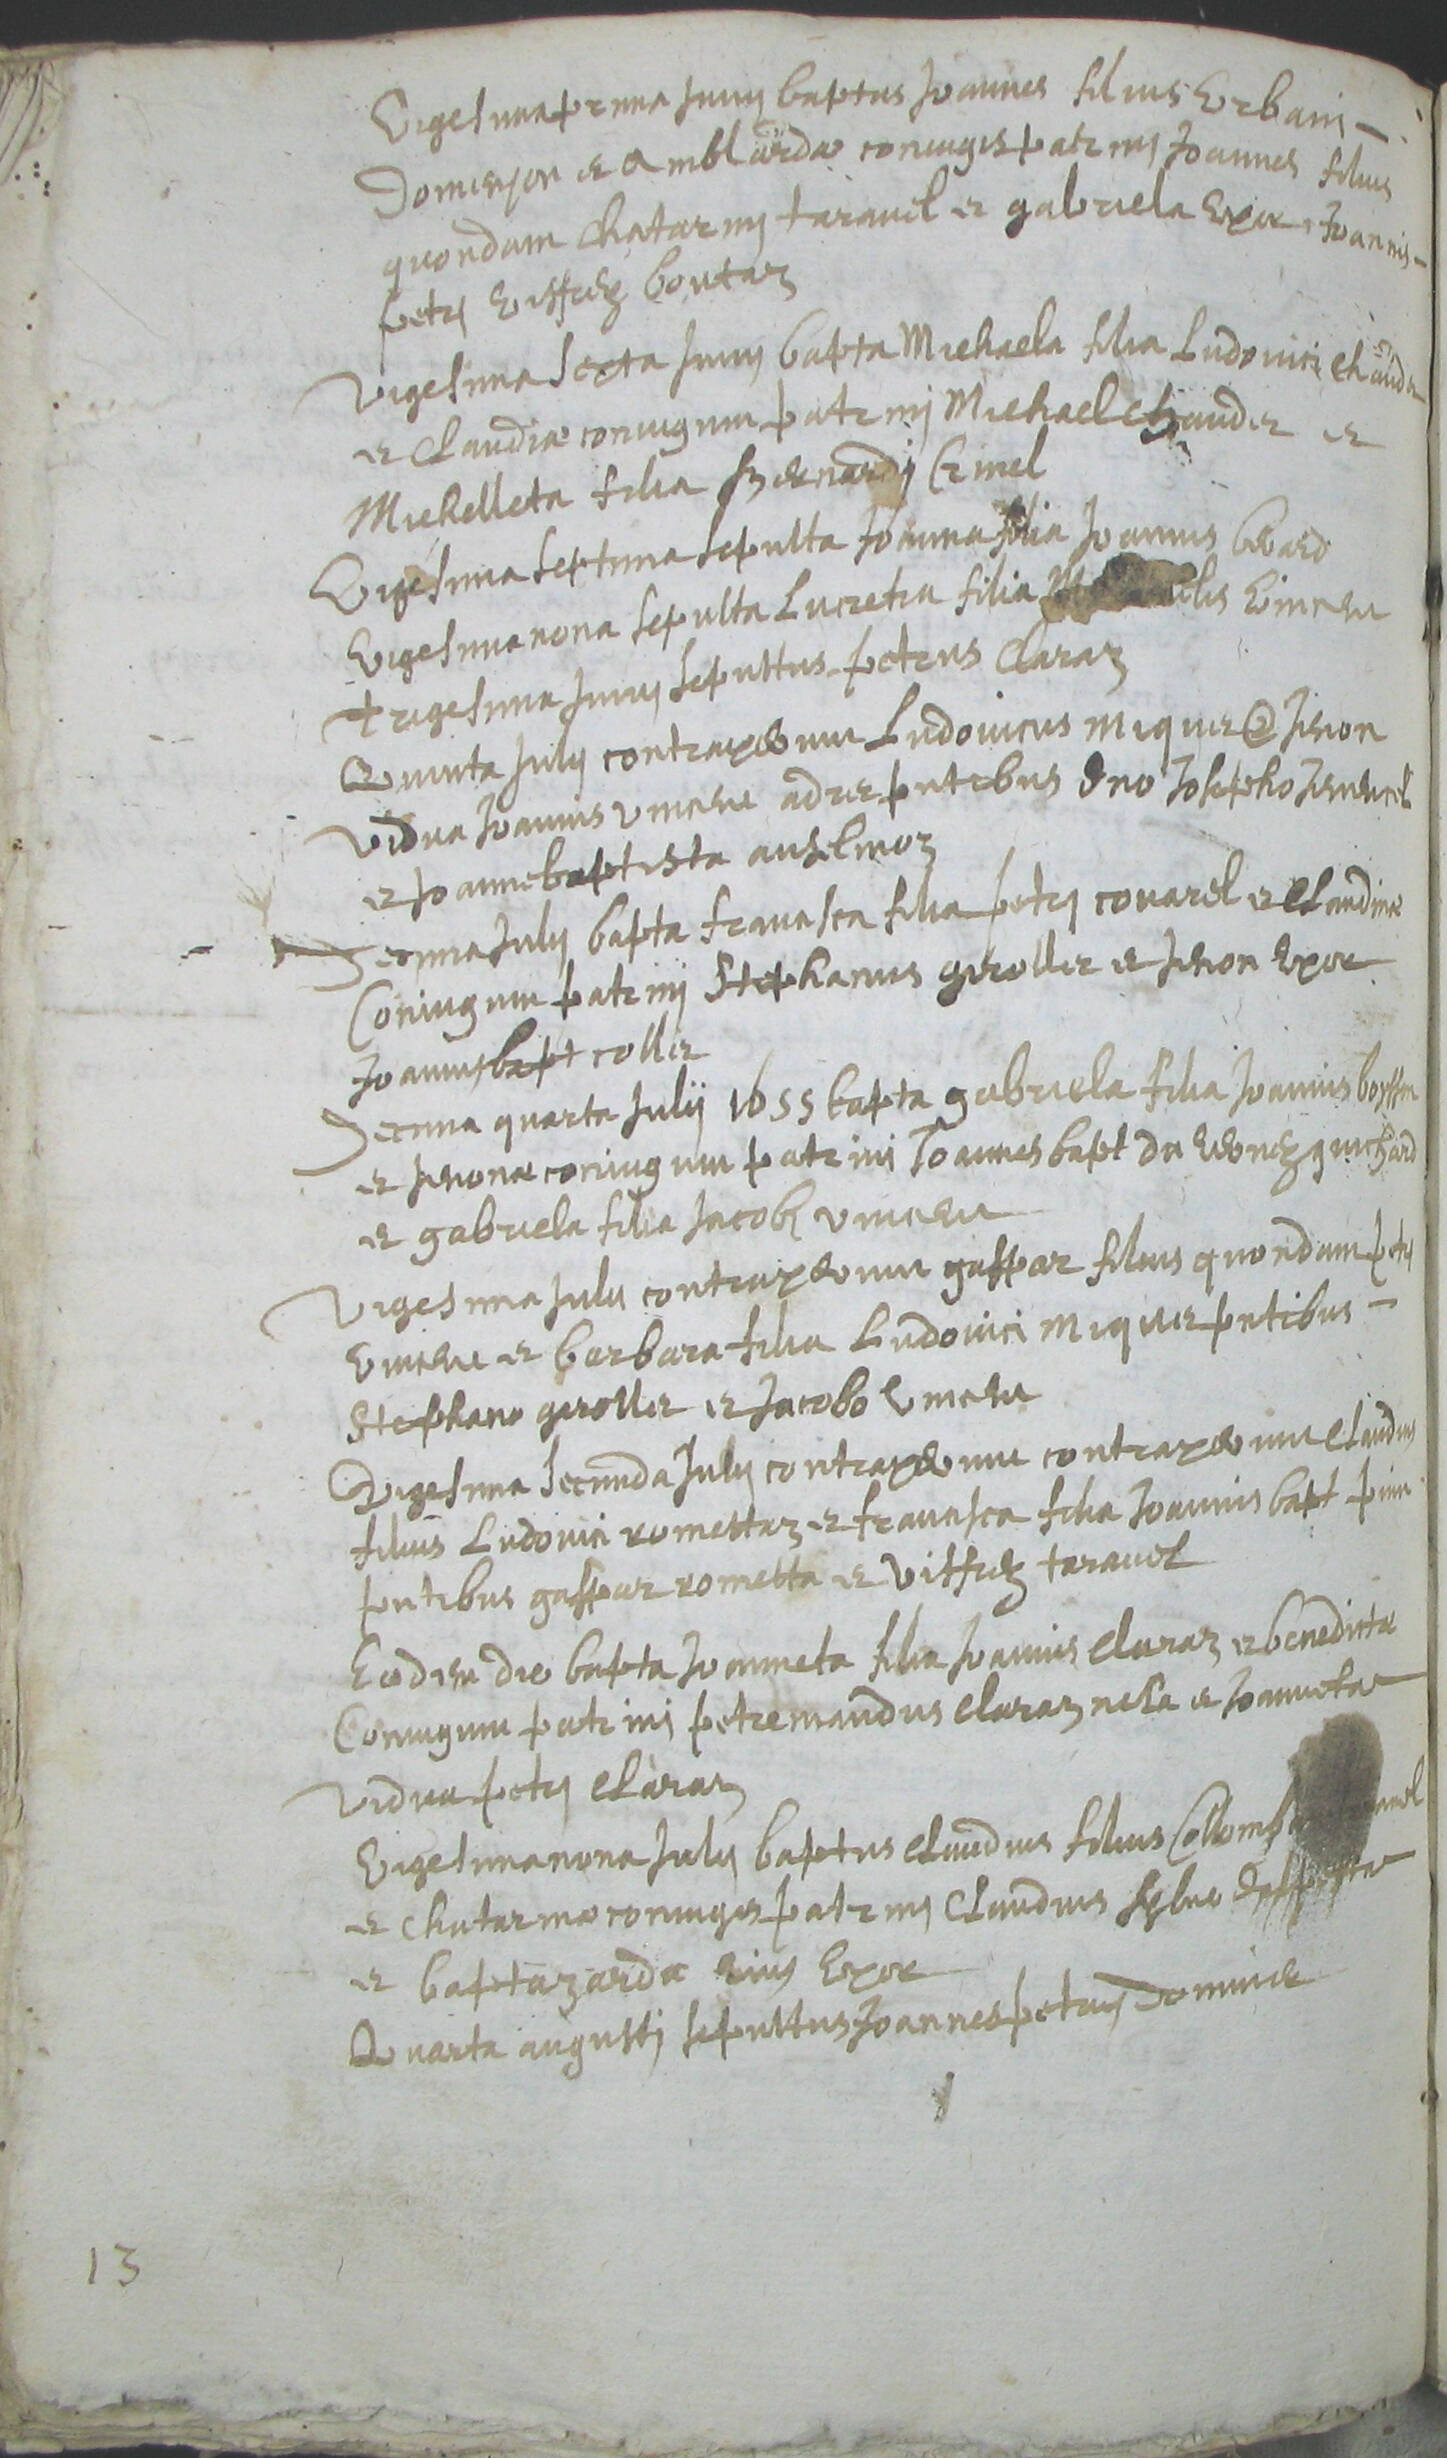 Vigesima prima Junij baptus Joannes filius Urbani
Domenjon et Amblardæ coniugis patrinij Joannes filius
quondam Chatarinij taravel et gabriela Uxor Joannis
petrj Viffrej boutaz
Vigesima sexta Junij bapta Michaela filia Ludovici Chaudet
et Claudiæ coniugum patrinij Michael Chaudet et
Michelleta filia bernardij
Vigesima septima sepulta Joanna filia Joannis
Vigesima nona sepulta Lucretia filia Vincent
trigesima Junij sepultus petrus Claraz
Quinta Julij contraxerunt Ludovicus miquet et Jenon
vidua Joannis vincent adret pntibus dno Josepho
et Joannebaptista anselmoz
Decima Julij bapta francisca filia petrj covarel et Claudinæ
Coniugum patrinij Stephanus giroller et Jenon Uxor
Joannis bapt coller
Decima quarta Julij 1655 bapta gabriela filia Joannis boysson
et Jenonæ coniugum patrini Joannes bapt du guichard
et gabriela filia Jacobj vincent
Vigesima Julii contraxerunt gaspar filius quondam petri
Vincent et barbara filia Ludovici miquet pntibus
Stephano giroller et Jacobo Vincent
Vigesima secunda Julij contraxerunt contraxerunt Claudius
filius Ludovici romettaz et francisca filia Joannis bapt
pntibus gaspar rometta et Viffrej taravel
Eodem die bapta Joanneta filia Joannis Claraz et benedictæ
Coniugum patrinj petremandus Claraz et Joanneta
vidua petrj Claraz
Vigesima nona Julij baptus Claudius filius
et Chatarinæ coniuges patrinj Claudius
et baptazarda eius Uxor
Quarta augustj sepultus Joannes petrus Dominict
13